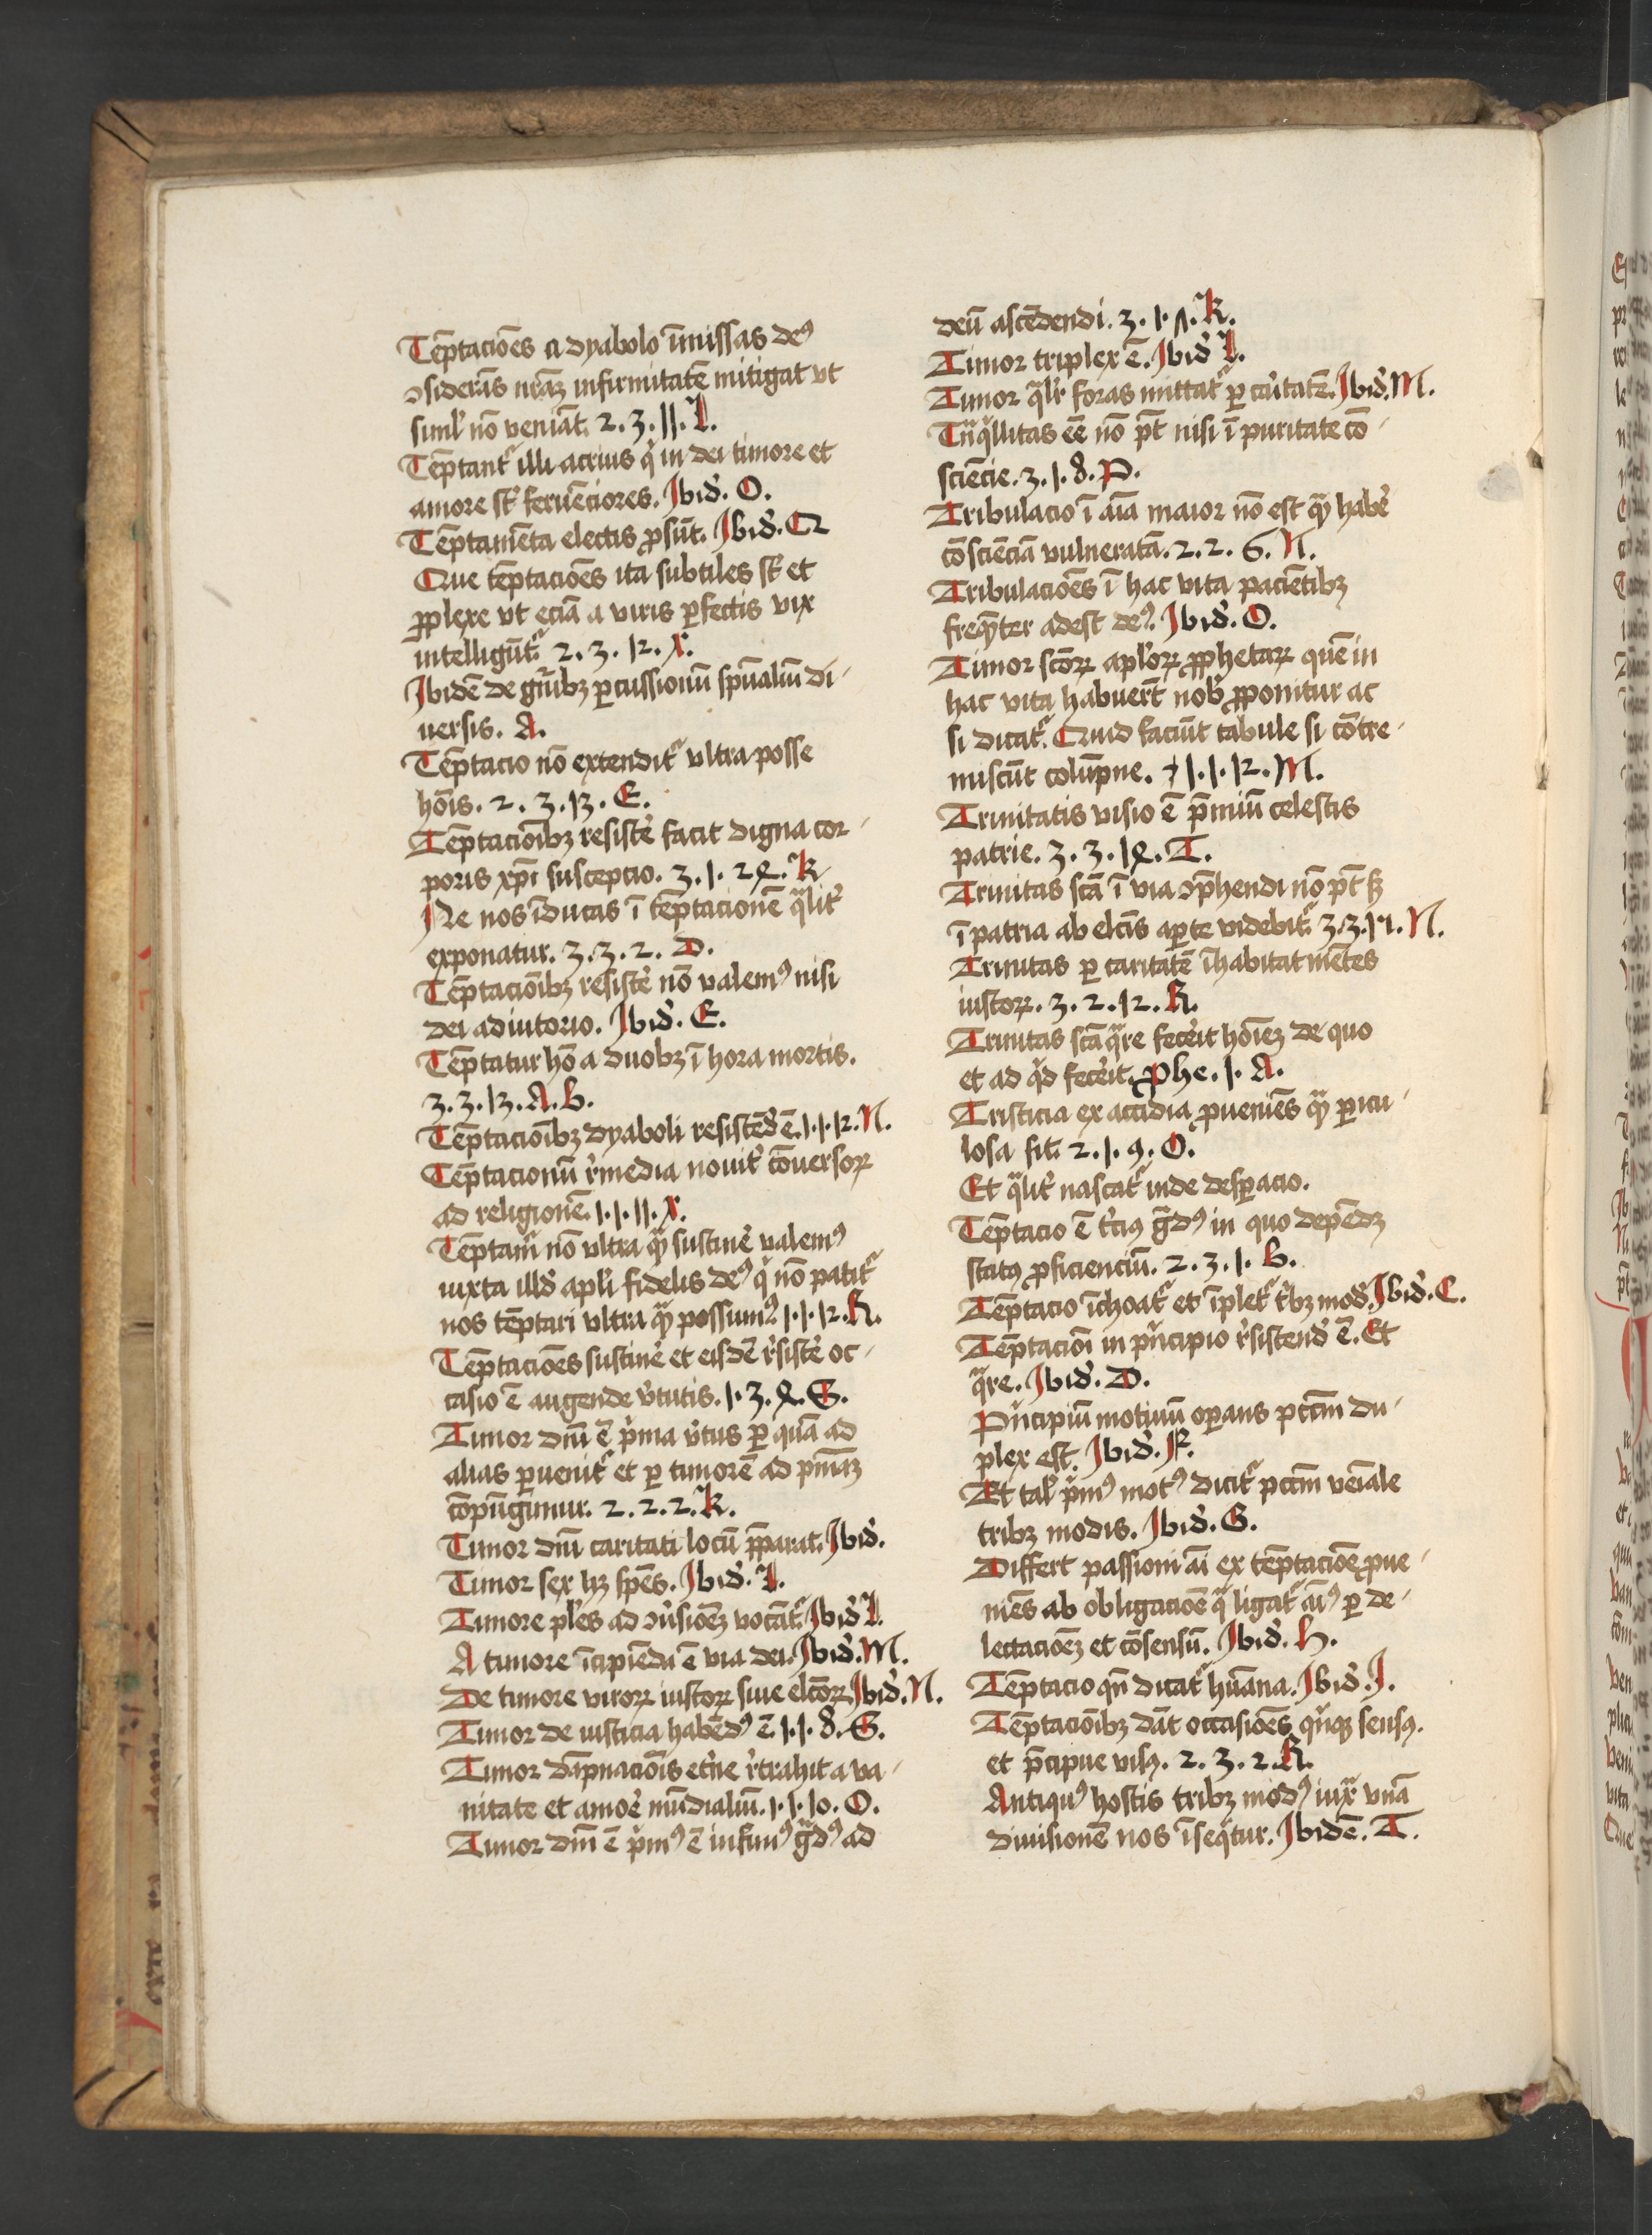 Te̅ptacio̅es a dyabolo i̅missas deꝰ
ↄsidera̅s nr̅aꝫ infirmitate̅ mitigat vt
siml̓ no̅ venia̅t. 2. 3. 11. L.
Te̅ptant᷑ illi acrius q̓ in dei timore et
amore su̅t ferue̅ciores. Jbid̓. O.
Te̅ptame̅ta electis ꝓsu̅t. Jbid̓. Q
Que te̅ptacio̅es ita subtiles su̅t et
ꝑplexe vt ecia̅ a viris ꝑfectis vix
intelligu̅t᷑. 2. 3. 12. X.
Jbide̅ de gn̅̓ibꝫ ꝑcussionu̅ sp̅ualiu̅ di-
uersis. A.
Te̅ptacio no̅ extendit᷑ vltra posse
ho̅is. 2. 3. 13. E.
Te̅ptacio̅ibꝫ resiste̓ facit digna cor-
poris xp̅i susceptio. 3. 1. 24. K
Ne nos i̅ducas i̅ te̅ptacione̅ qᷓlit̓
exponatur. 3. 3. 2. D.
Te̅ptacio̅ibꝫ resiste̓ no̅ valemꝰ nisi
dei adiutorio. Jbid̓. E.
Te̅ptatur ho̅ a duobꝫ i̅ hora mortis.
3. 3. 13. A. B.
Te̅ptacio̅ibꝫ dyaboli resiste̅d̓ e̅. 1. 1. 12. N.
Te̅ptacionu̅ r̓media nouit̓ co̅uersoꝝ
ad religione̅. 1. 1. 11. X.
Te̅ptam̓ no̅ vltra qᷓꝫ sustine̓ valemꝰ
iuxta illd̓ apl̓i fidelis deꝰ q̓ no̅ patit᷑
nos te̅ptari vltra qᷓꝫ possumꝰ. 1. 1. 12. R.
Te̅ptacio̅es sustine̓ et eisde̅ r̓siste̓ oc-
casio e̅ augende v̓tutis. 1. 3. 4. G.
Timor dn̅i e̅ p̓ma v̓tus ꝑ qua̅ ad
alias ꝑuenit᷑ et ꝑ timore̅ ad pn̅iaꝫ
co̅pu̅gimur. 2. 2. 2. K.
Timor dn̅i caritati locu̅ p̅parat. Jbid̓.
Timor sex hꝫ sp̅es. Jbid̓. L.
Timore pl̓es ad ↄu̓sio̅eꝫ voca̅t᷑ Jbid̓ L.
A timore i̅cipie̅da e̅ via dei. Jbid̓. M.
De timore viroꝝ iustoꝝ siue elc̅oꝝ Jbid̓. N.
Timor de iusticia habe̅dꝰ e̅ 1. 1. 8. G.
Timor da̅pnacio̅is et̓ne r̓trahit a va-
nitate et amoe̓ mu̅dialiu̅. 1. 1. 10. O.
Timor dn̅i e̅ p̓mꝰ e̅ infimꝰ gᷓdꝰ ad
deu̅ asce̅dendi. 3. 1. K.
Timor triplex e̅. Jbid̓ L.
Timor qᷓlr̓ foras mittat᷑ ꝑ ca̓itate̅. Jbid̓. M.
Tn̅qͥllitas e̅e no̅ pt̅ nisi i̅ puritate co̅-
scie̅cie. 3. 1. 8. P.
Tribulacio i̅ ai̅a maior no̅ est qᷓꝫ habe̓
co̅scie̅cia̅ vulnerata̅. 2. 2. 6. N.
Tribulacio̅es i̅ hac vita pacie̅tibꝫ
freqᷓꝫter adest deꝰ. Jbid̓. O.
Timor sco̅ꝝ apl̓oꝝ ꝓphetaꝝ que̅ in
hac vita habuer̅t nob̓ ꝓponitur ac
si dicat᷑. Quid faciu̅t tabule si co̅tre-
miscu̅t colu̅pne. 1. 1. 12. M.
Trinitatis visio e̅ p̅miu̅ celestis
patrie. 3. 3. 14. T.
Trinitas sca̅ i̅ via ↄp̅hendi no̅ pt̅ sꝫ
i̅ patria ab elc̅is aꝑte videbit᷑. 3. 3. 15. N.
Trinitas ꝑ caritate̅ i̅habitat me̅tes
iustoꝝ. 3. 2. 12. R.
Trinitas sca̅ qᷓre fece̓it ho̅ieꝫ de quo
et ad qͥd fece̓it. Phe. 1. A.
Tristicia ex accidia ꝓuenie̅s qᷓꝫ ꝑicu-
losa sit. 2. 1. 9. O.
Et qᷓlit̓ nascat᷑ inde desꝑacio.
Te̅ptacio e̅ t̓ciꝰ gᷓdꝰ in quo depe̅dꝫ
statꝰ ꝓficienciu̅. 2. 3. 1. B.
Te̅ptacio i̅choat᷑ et i̅plet᷑ t̓bꝫ mod̓. Jbid̓. C.
Te̅ptacio̅i in pn̓cipio r̓sistend̓ e̅. Et
qᷓre. Jbid̓. D.
Pn̓cipiu̅ motiuu̅ oꝑans pcc̅m du-
plex est. Jbid̓. F.
Et tal̓ p̓mꝰ motꝰ dicit᷑ pcc̅m ve̅iale
tribꝫ modis. Jbid̓. G.
Differt passioni ai̅ ex te̅ptacio̅e ꝓue-
nie̅s ab obligacio̅e qᷓ ligat᷑ ai̅ꝰ ꝑ de-
lectacio̅eꝫ et co̅sensu̅. Jbid̓. H.
Te̅ptacio qn̅ dicat᷑ hu̅ana. Jbid̓. J.
Te̅ptacio̅ibꝫ da̅t occasio̅es qͥnqꝫ sensꝰ.
et p̅cipue visꝰ. 2. 3. 2. R.
Antiquꝰ hostis tribꝫ modꝰ iuxᷓ vna̅
diuisione̅ nos i̅seqͥtur. Jbide̅. T.